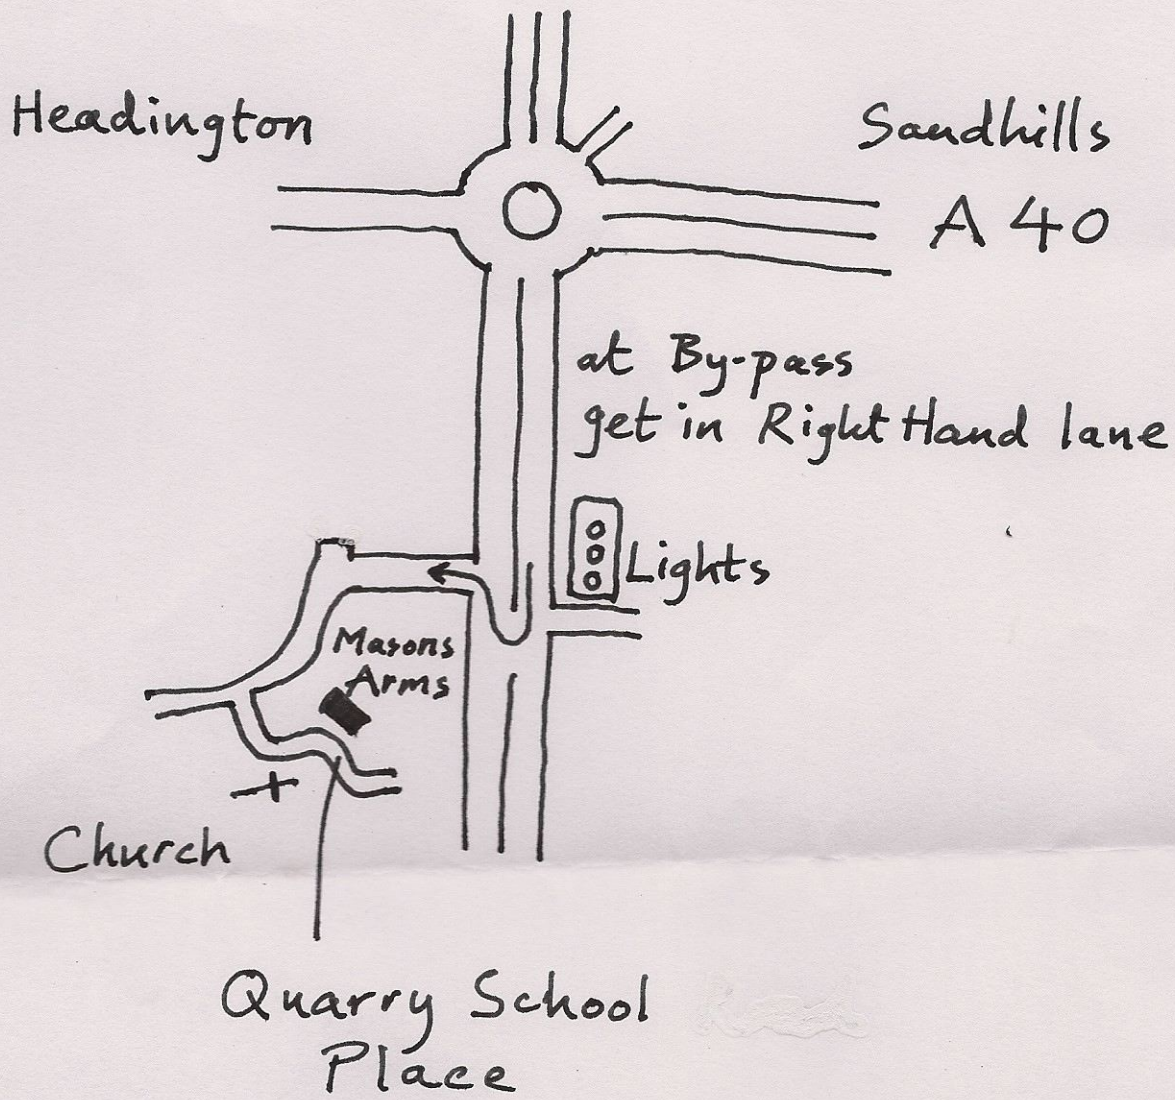 Headington
Sandhills
A 40
at By-pass
get in Right Hand lane
Lights
Masons
Arms
Church
Quarry School
Place